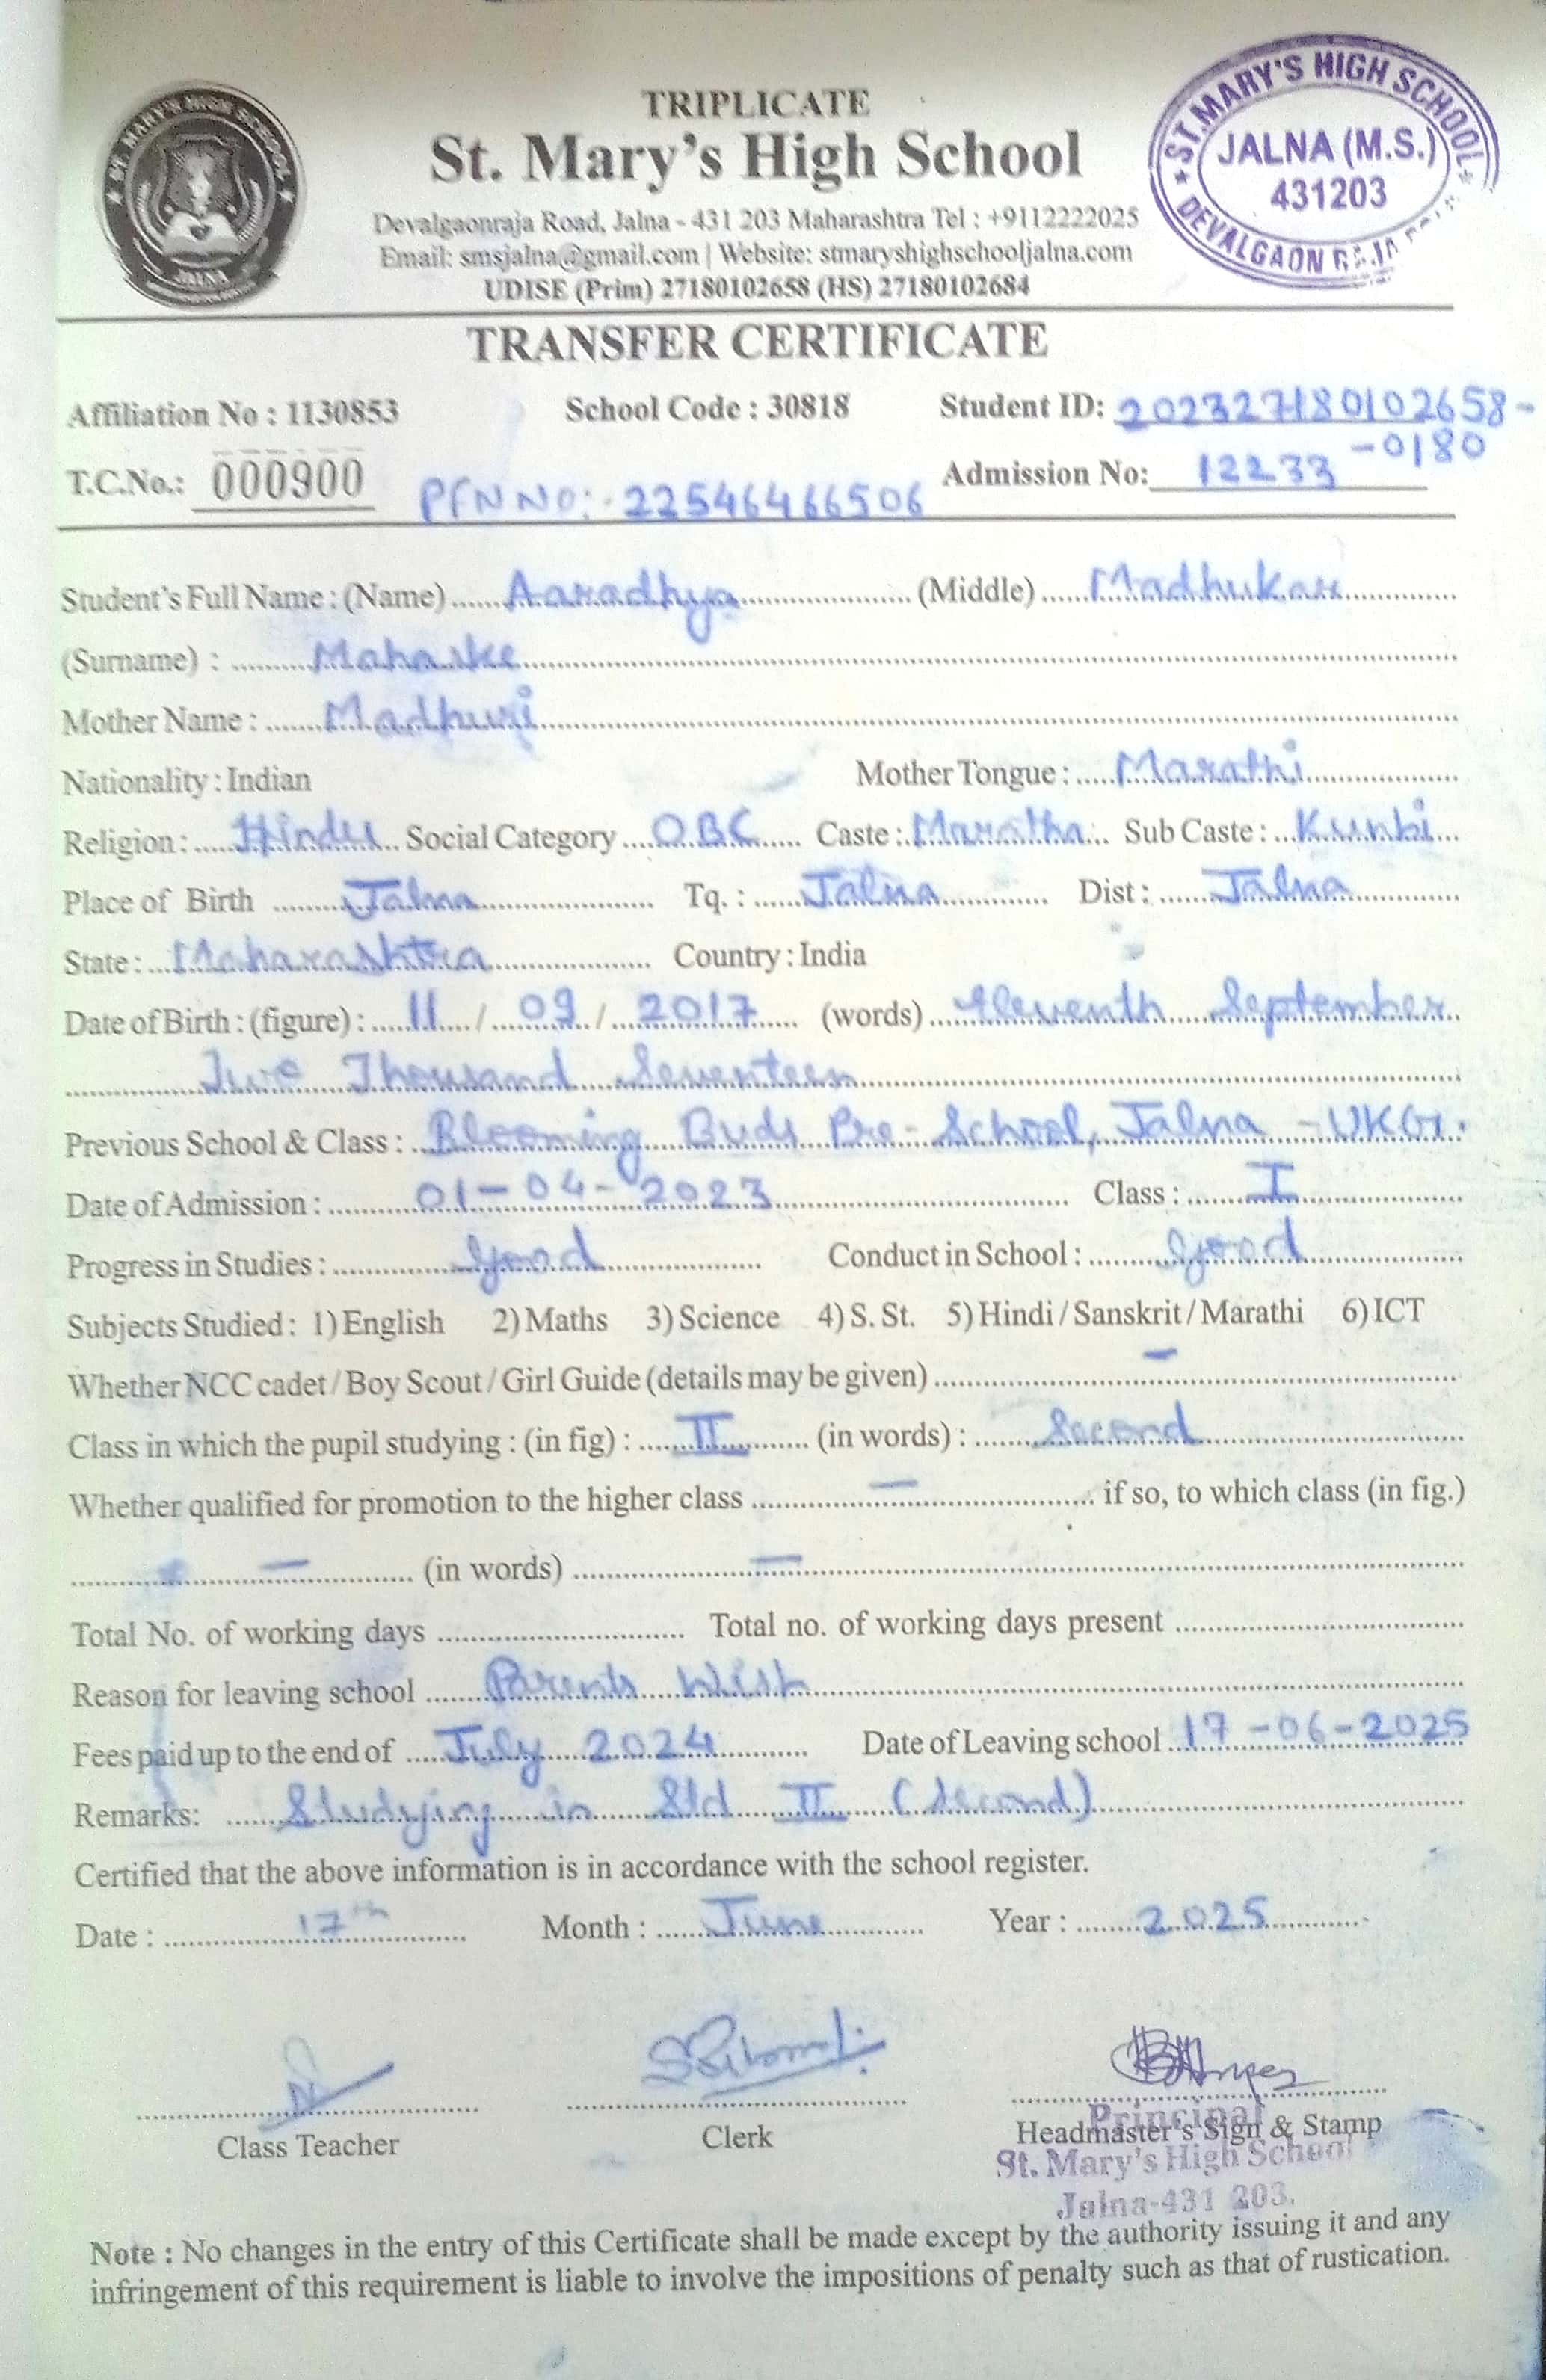 TRIPLICATE
St. Mary's High School
Devalgaonraja Road, Jalna - 431 203 Maharashtra Tel : +9112222025
Email: smsjalna@gmail.com | Website: stmaryshighschooljalna.com
UDISE (Prim) 27180102658 (HS) 27180102684
ST. MARY'S HIGH SCHOOL
JALNA
ST. MARY'S HIGH SCHOOL
JALNA (M.S.)
431203
DEVALGAON RAJA
TRANSFER CERTIFICATE
Affiliation No : 1130853 School Code : 30818 Student ID: 202327180102658-
-0180
T.C.No.: 000900 PEN NO:- 22546466506 Admission No: 12233
Student's Full Name : (Name) Aaradhya (Middle) Madhukar
(Surname) : Mahaske
Mother Name : Madhuri
Nationality : Indian Mother Tongue : Marathi
Religion : Hindu Social Category OBC Caste : Maratha Sub Caste : Kunbi
Place of Birth Jalna Tq. : Jalna Dist : Jalna
State : Maharashtra Country : India
Date of Birth : (figure) : 11 / 09 / 2017 (words) Eleventh September
Two Thousand Seventeen
Previous School & Class : Blooming Buds Pre-School, Jalna - UKG.
Date of Admission : 01-04-2023 Class : I
Progress in Studies : Good Conduct in School : Good
Subjects Studied : 1) English 2) Maths 3) Science 4) S. St. 5) Hindi / Sanskrit / Marathi 6) ICT
Whether NCC cadet / Boy Scout / Girl Guide (details may be given) -
Class in which the pupil studying : (in fig) : II (in words) : Second
Whether qualified for promotion to the higher class - if so, to which class (in fig.)
- (in words) -
Total No. of working days Total no. of working days present
Reason for leaving school Parents Wish
Fees paid up to the end of July 2024 Date of Leaving school 17-06-2025
Remarks: Studying in Std II (Second)
Certified that the above information is in accordance with the school register.
Date : 17th Month : June Year : 2025
Class Teacher Clerk Headmaster's Sign & Stamp
Principal
St. Mary's High School
Jalna-431 203.
Note : No changes in the entry of this Certificate shall be made except by the authority issuing it and any
infringement of this requirement is liable to involve the impositions of penalty such as that of rustication.